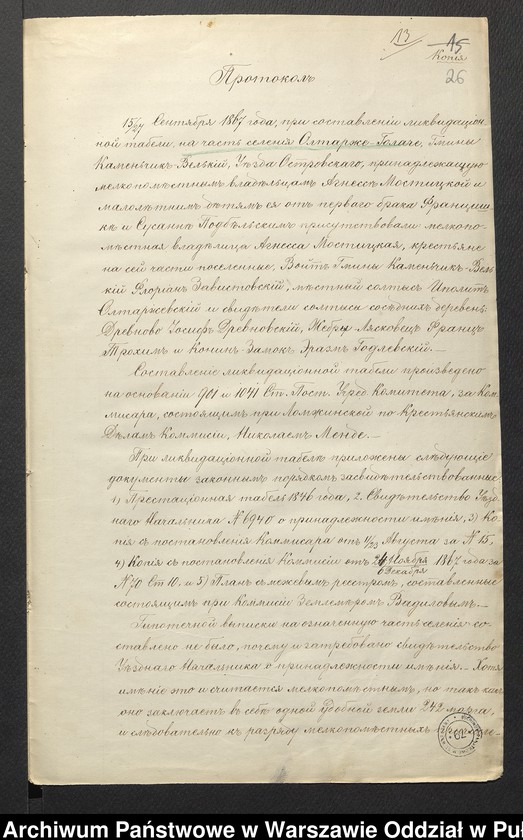 13
15
Копія
26
Протоколъ
15/27 Сентября 1867 года, при составленіи ликвидаціон-
ной табели, на часть селенія Олтарже-Голаче, Гмины
Каменьчикъ-Велькій, Уѣзда Островскаго, принадлежащую
мелкопомѣстнымъ владѣльцамъ Агнессѣ Мостицкой и
малолѣтнимъ дѣтямъ ея отъ перваго брака Францишк-
кѣ и Сусаннѣ Подбѣльскимъ присутствовали мелкопо-
мѣстная владѣлица Агнесса Мостицкая, крестьяне
на сей части поселенные, Войтъ Гмины Каменьчикъ-Вель-
кій Флоріанъ Завистовскій, мѣстный солтысъ Иполитъ
Олтаржевскій и свидѣтели солтысы сосѣднихъ деревень:
Древново Іосифъ Древновскій, Жебры Лясковецъ Францъ
Трохимъ и Конинъ-Замокъ Эразмъ Годлевскій.—
Составленіе ликвидаціонной табели произведено
на основаніи 901 и 1041 Ст. Пост. Учред. Комитета, за Ком-
мисара, состоящимъ при Ломжинской по Крестьянскимъ
Дѣламъ Коммисіи, Николаемъ Менде.—
При ликвидаціонной табелѣ приложены слѣдующіе
документы законнымъ порядкомъ засвидѣтельствованные
1) Престаціонная табель 1846 года, 2. Свидѣтельство Уѣзд-
наго Начальника N 6940 о принадлежности имѣнія, 3) Ко-
пія съ постановленія Коммисара отъ 11/23 Августа за N 15,
4) Копія съ постановленія Коммисіи отъ 24 Ноября/6 Декабря 1867 года за
N 70 Ст 10. и 5) Планъ съ межевымъ реестромъ, составленные
состоящимъ при Коммисіи Землемѣромъ
Гипотечной выписки на означенную часть селенія со-
ставлено не было, почему и затребовано свидѣтельство
Уѣзднаго Начальника о принадлежности имѣнія.— Хотя
имѣніе это и считается мелкопомѣстнымъ, но такъ какъ
оно заключаетъ въ себѣ одной удобной земли 242 морга,
и слѣдовательно къ разряду мелкопомѣстныхъ
Archiwum Państwowe w Warszawie Oddział w Puł